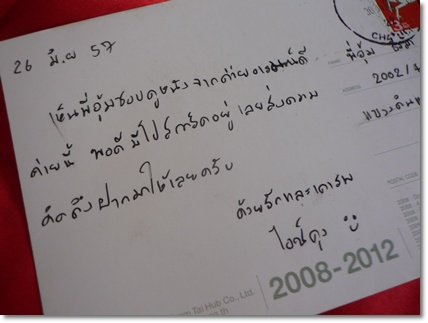 26 มิ.ย 57
เห็นพี่อุ้มชอบดูหนังจากค่ายอารมณ์ดี
ค่ายนี้ พอดีมีโปสการ์ดอยู่ เลยส่งความ
คิดถึงฝากมาให้เลยครับ
ด้วยรักและเคารพ
พี่อุ้ม
2002/
แขวงดิน
POSTAL CODE
Tai Hub Co., Ltd.
2008-2012